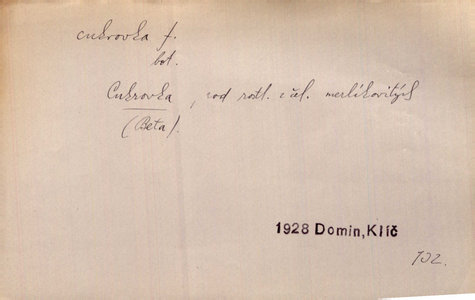 cukrovka f.
bot.
Cukrovka, rod rostl. z čel. merlíkovitých
(Beta).
1928 Domin, Klíč
102.